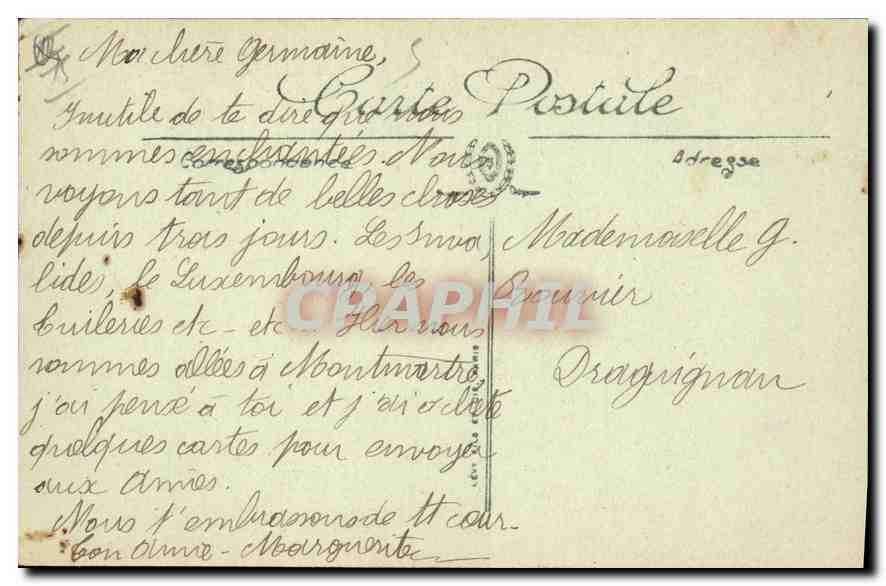 Ma chère Germaine,
Carte Postale
Inutile de te dire que nous
sommes enchantées. Nous
Correspondance
Adresse
voyons tant de belles choses
depuis trois jours. Les Inva,
lides, le Luxembourg, les
Tuileries etc - etc Hier nous
sommes allées à Montmartre
j'ai pensé à toi et j'ai acheté
quelques cartes pour envoyer
aux amies.
Nous t'embrassons de tt cœur.
Ton amie - Marguerite
Mademoiselle G.
Draguignan
CPAPHIL